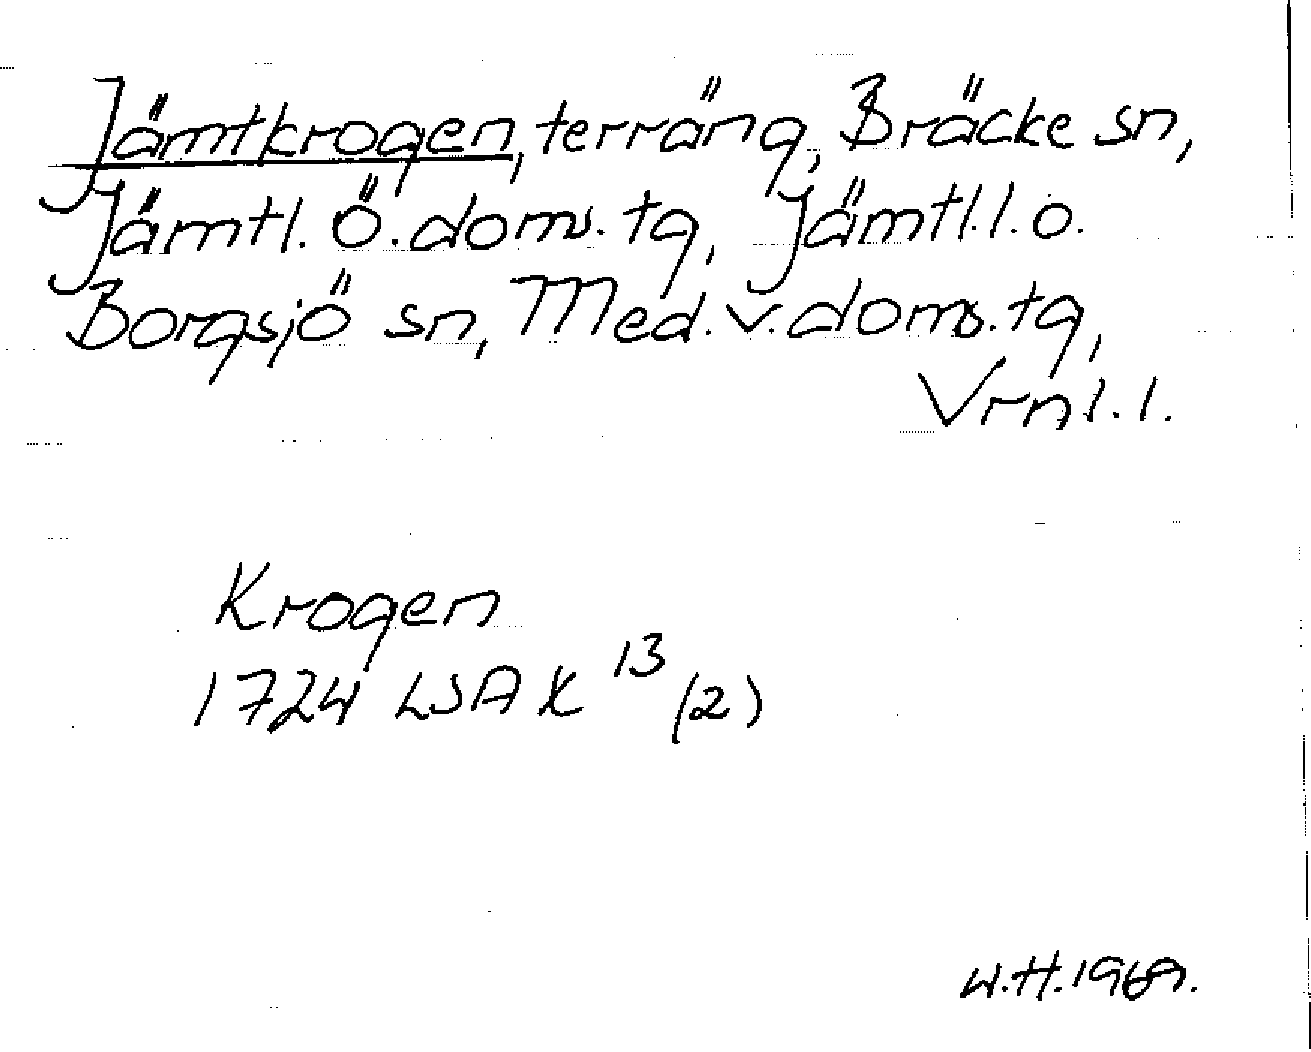 Jämtkrogen, terräng, Bräcke sn,
Jämtl. Ö. doms. tg, Jämtl. l. o.
Borgsjö sn, Med. v. doms. tg,
Vrnl. l.
Krogen
1724 LSA X 13 (2)
W.H. 1969.